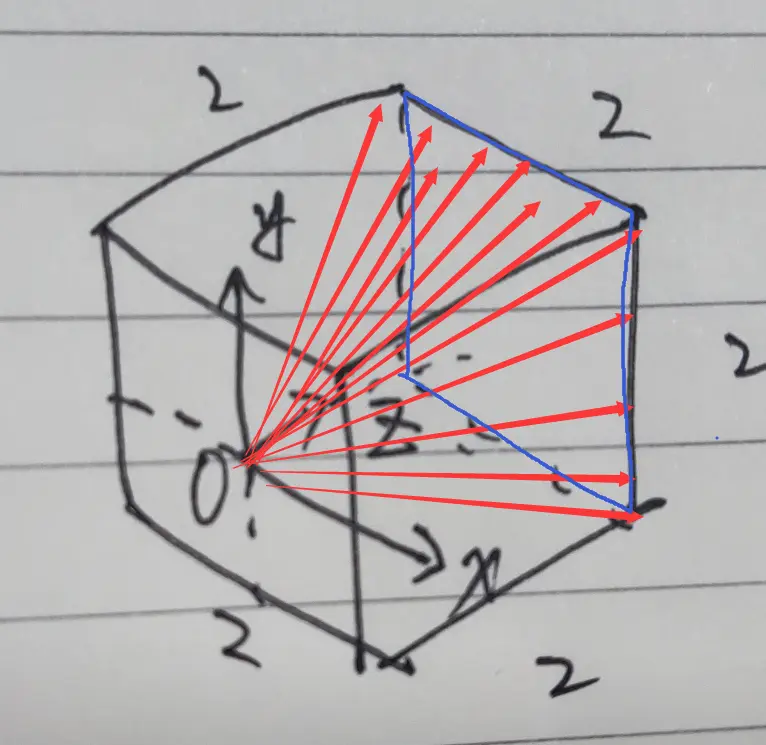 2
2
y
2
Z
O
x
2
2